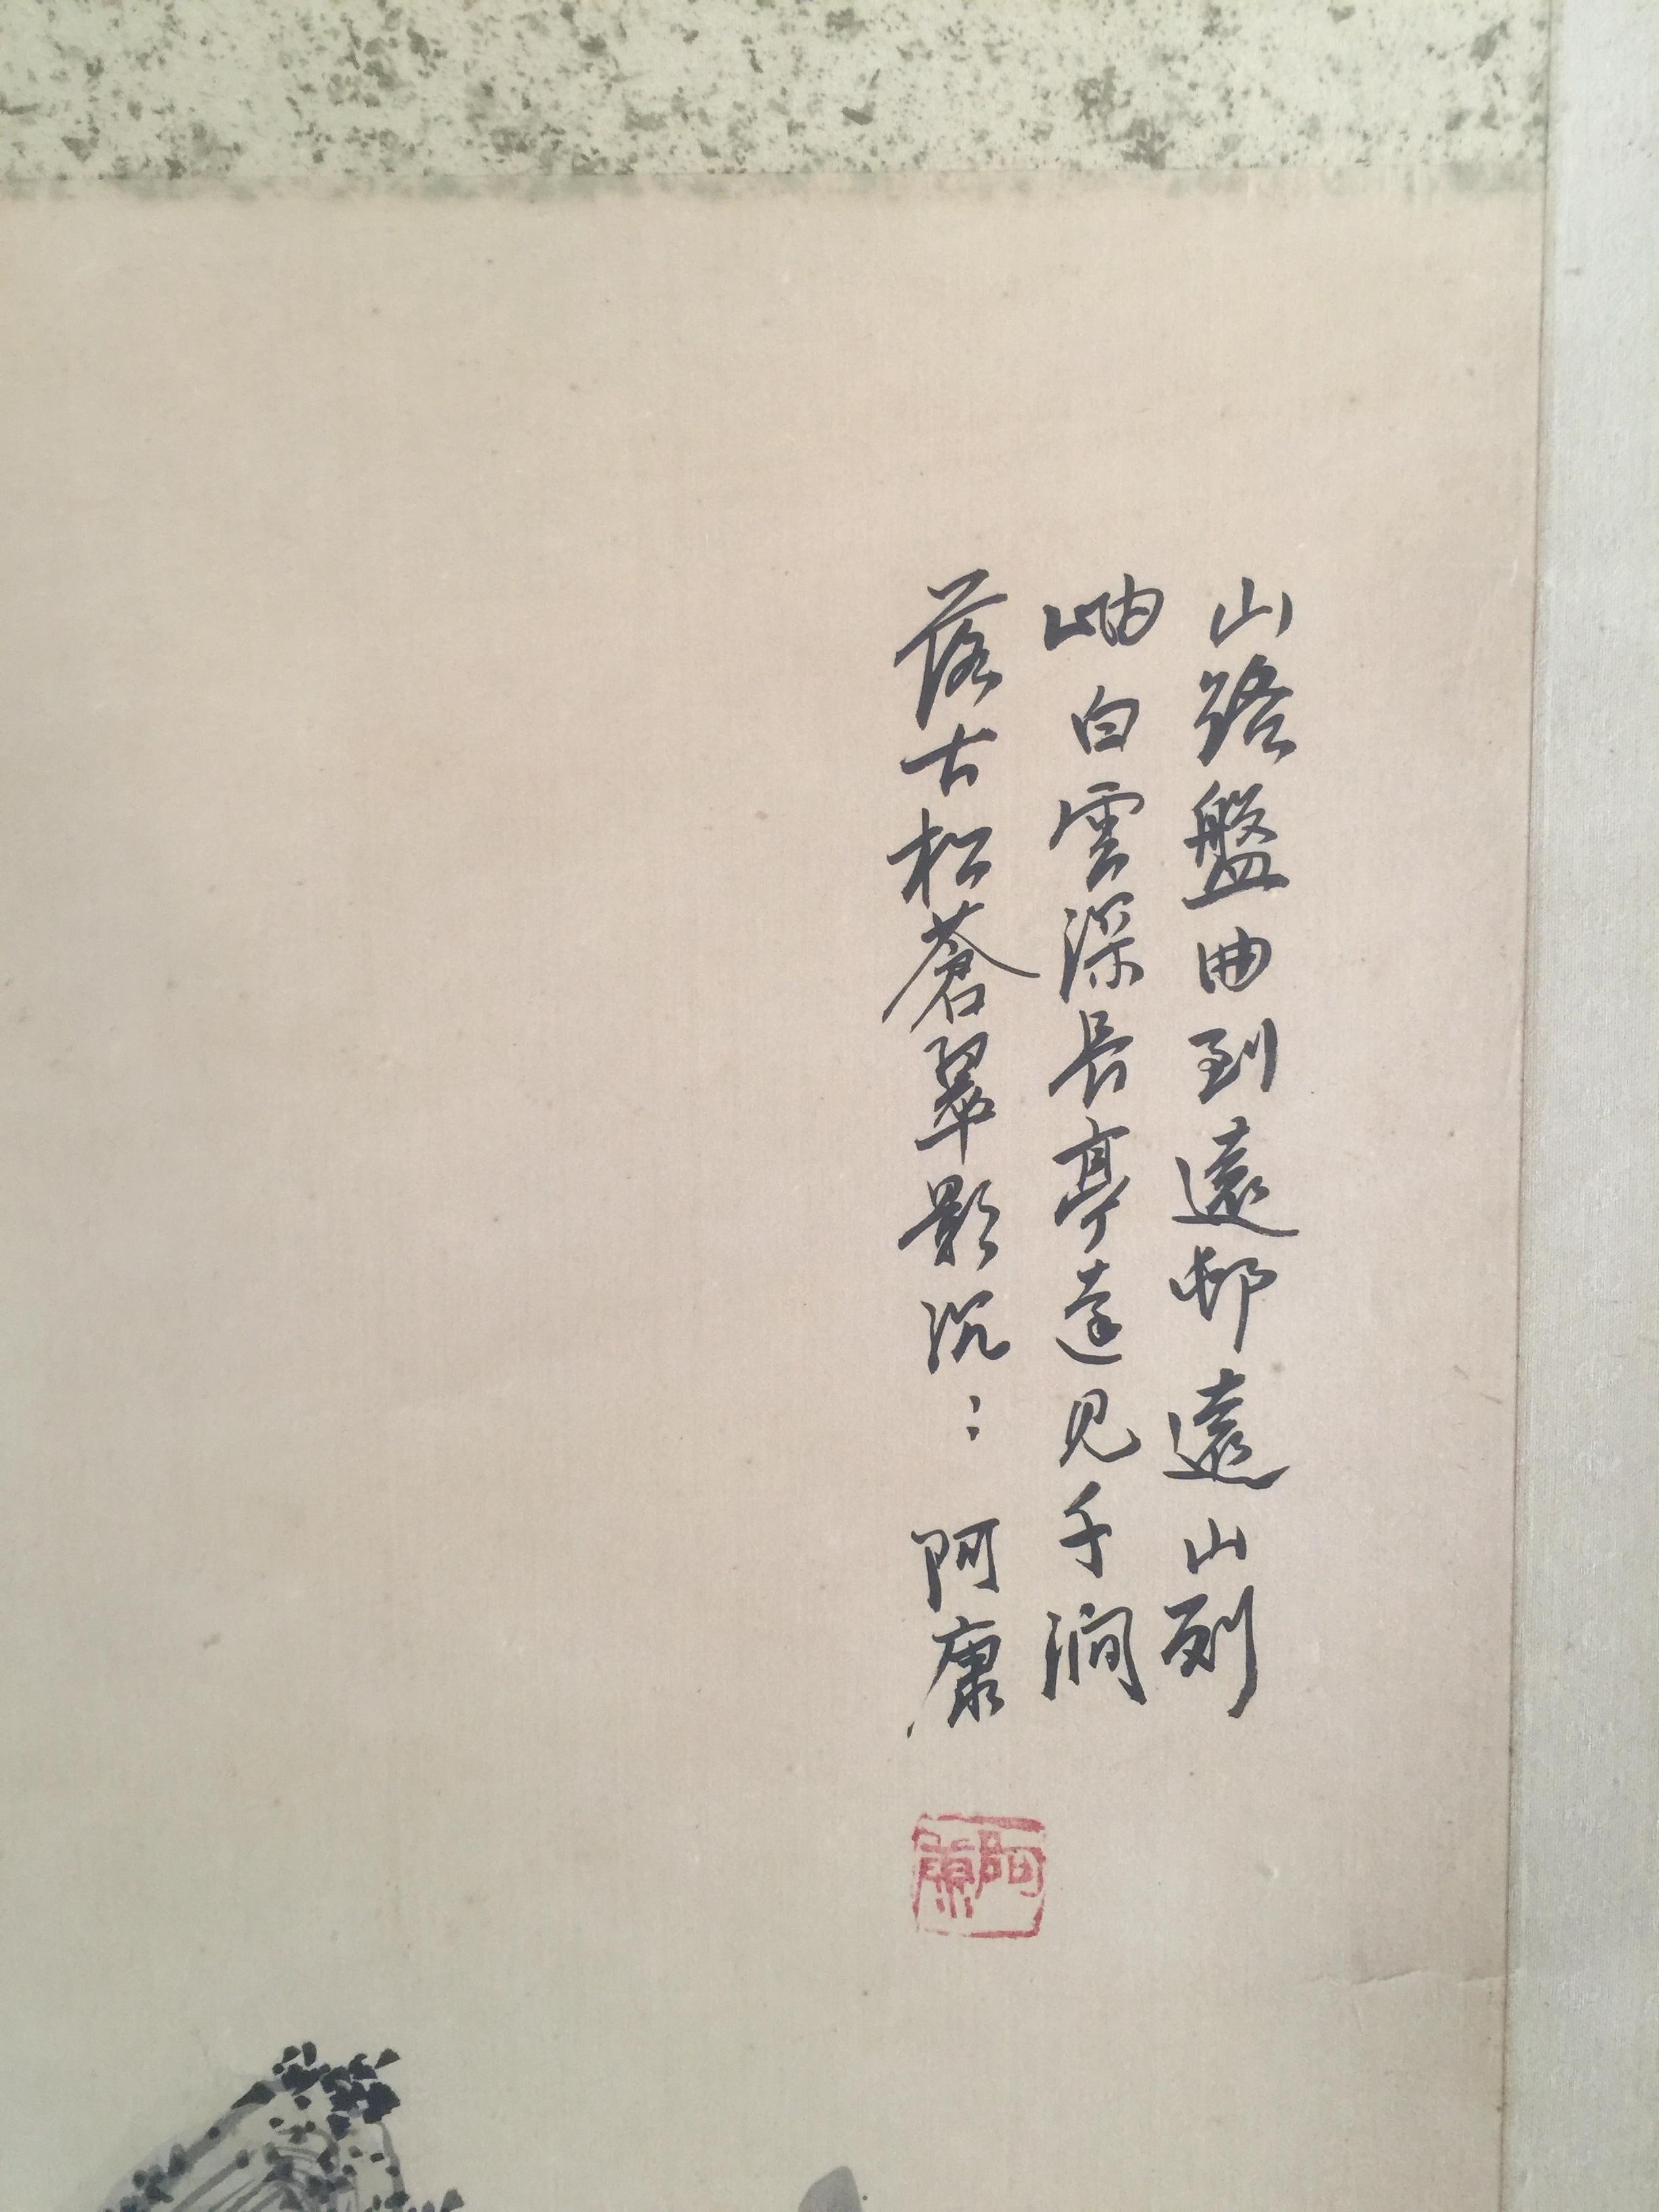 山路盤曲到遠邨遠山列
岫白雲深長亭見千澗
落古松蒼翠影沉：阿康
阿康